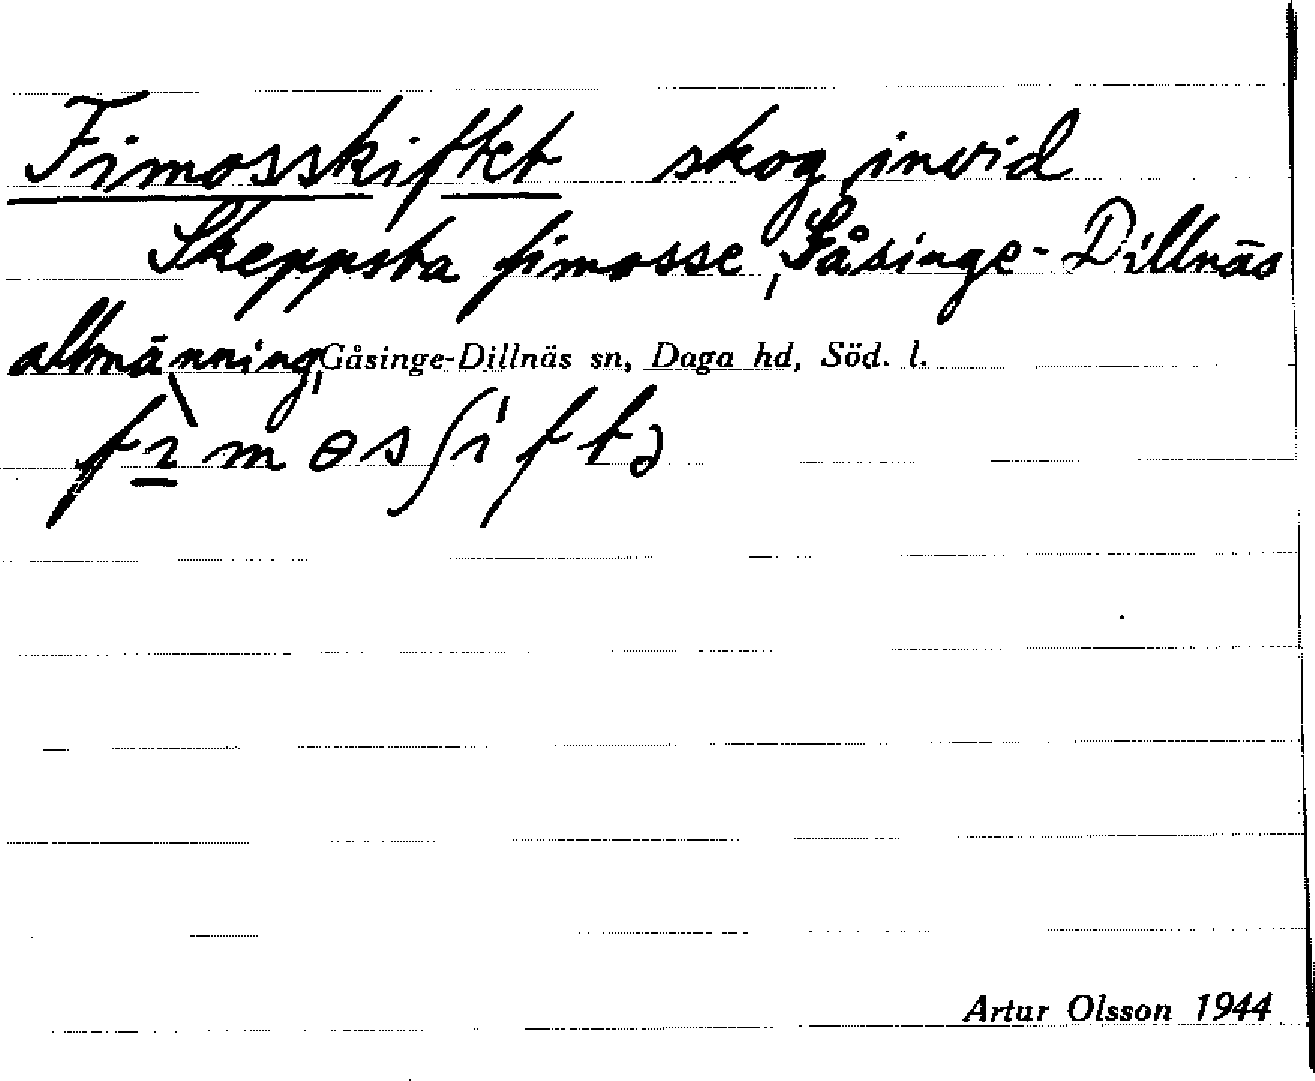 Fimosskiftet skog invid
Skeppsta fimosse, Gåsinge-Dillnäs
allmänning, Gåsinge-Dillnäs sn, Daga hd, Söd. l.
fi̠mɵsʃiftə
Artur Olsson 1944